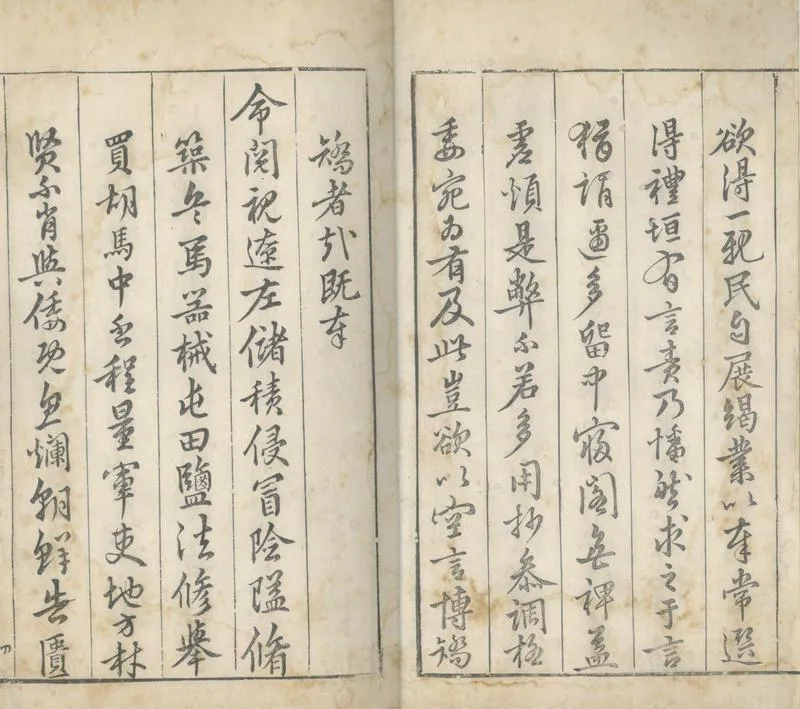 欲得一親民自展竭業以奉常選
得禮垣有言責乃幡然求之于言
猶謂多留中寢閣無裨益
虛煩是弊不若多用抄叅調
委宛為有及此豈欲以空言博矯
矯者哉既奉
命閱視遼左儲積侵冒險隘脩
築兵馬器械屯田鹽法修舉
買胡馬中程量軍吏地方材
賢不肖與倭既魚爛朝鮮告匱